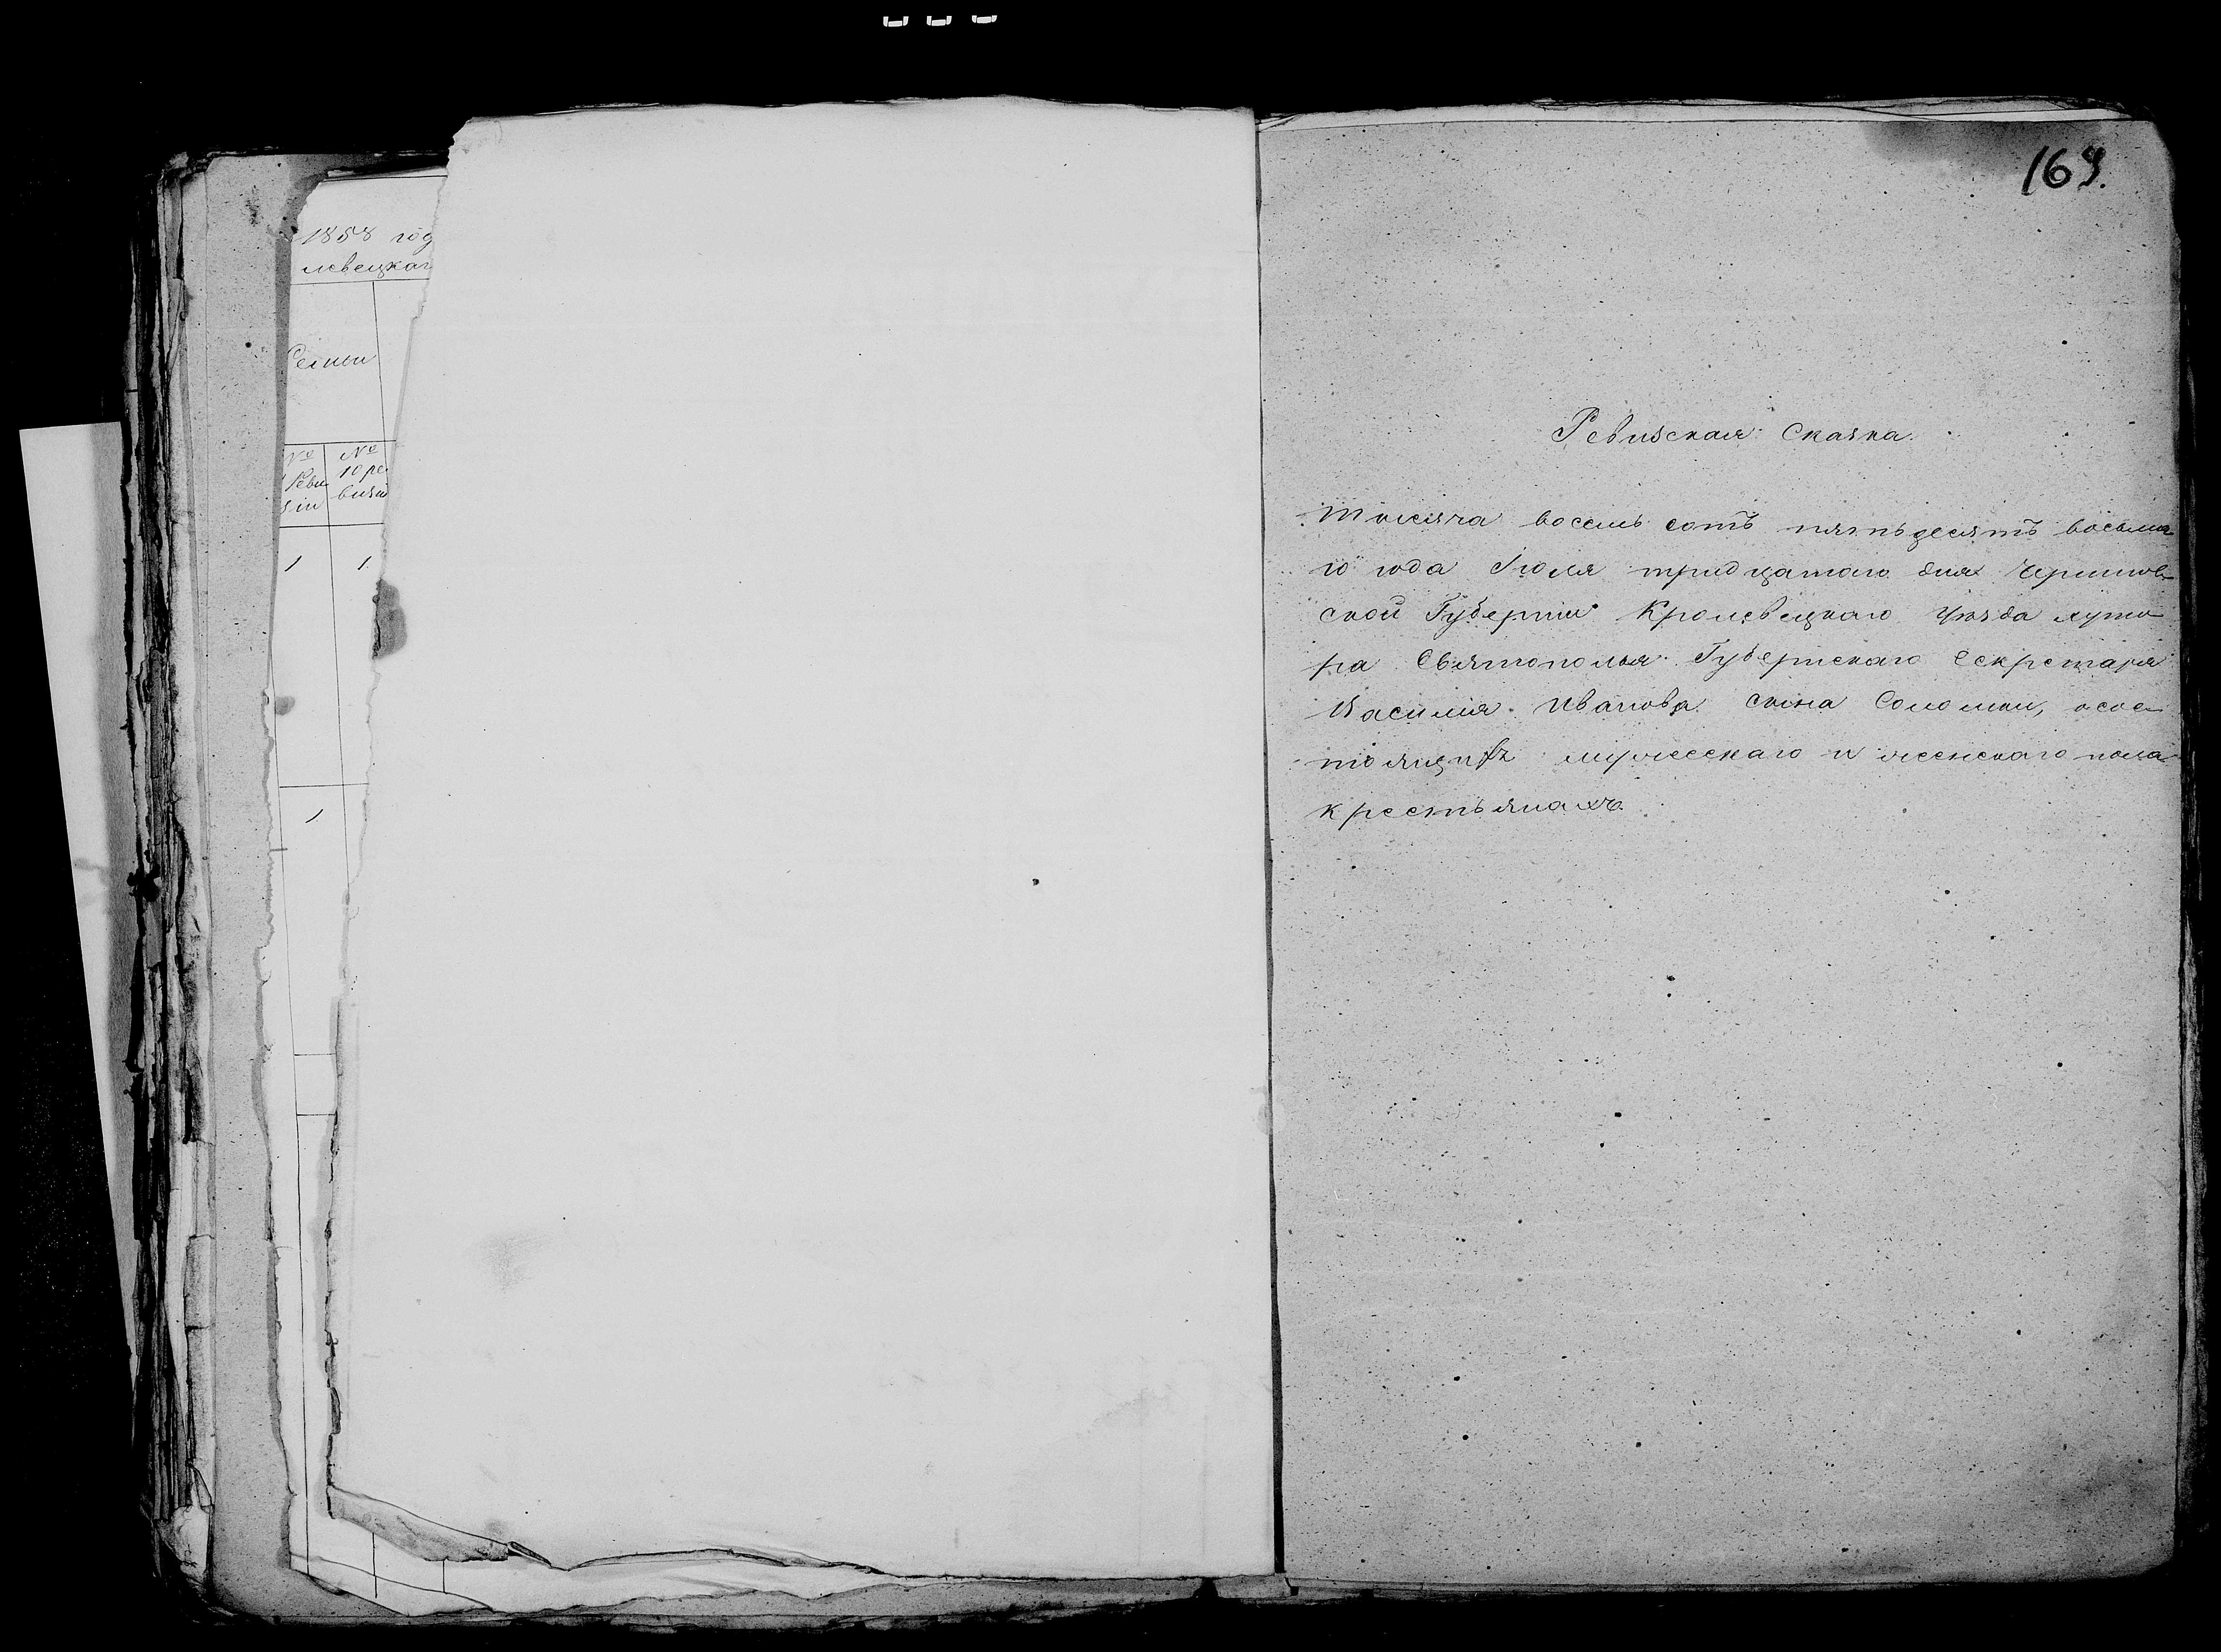 1858 год
левецкаг
Семьи
№ №
Реви 10 ре
зіи визіи
1 1.
1
169.
Ревизская Сказка.
Тысяча восемь сотъ пятьдесятъ восьма
го года Іюля тридцатаго дня Чернигов-
ской Губерніи Кролевецкаго Уѣзда хуто
ра Святополья Губернскаго Секретаря
Василия Иванова сына Соломки, о сос-
тоящихъ мужескаго и женскаго пола
крестьянахъ.